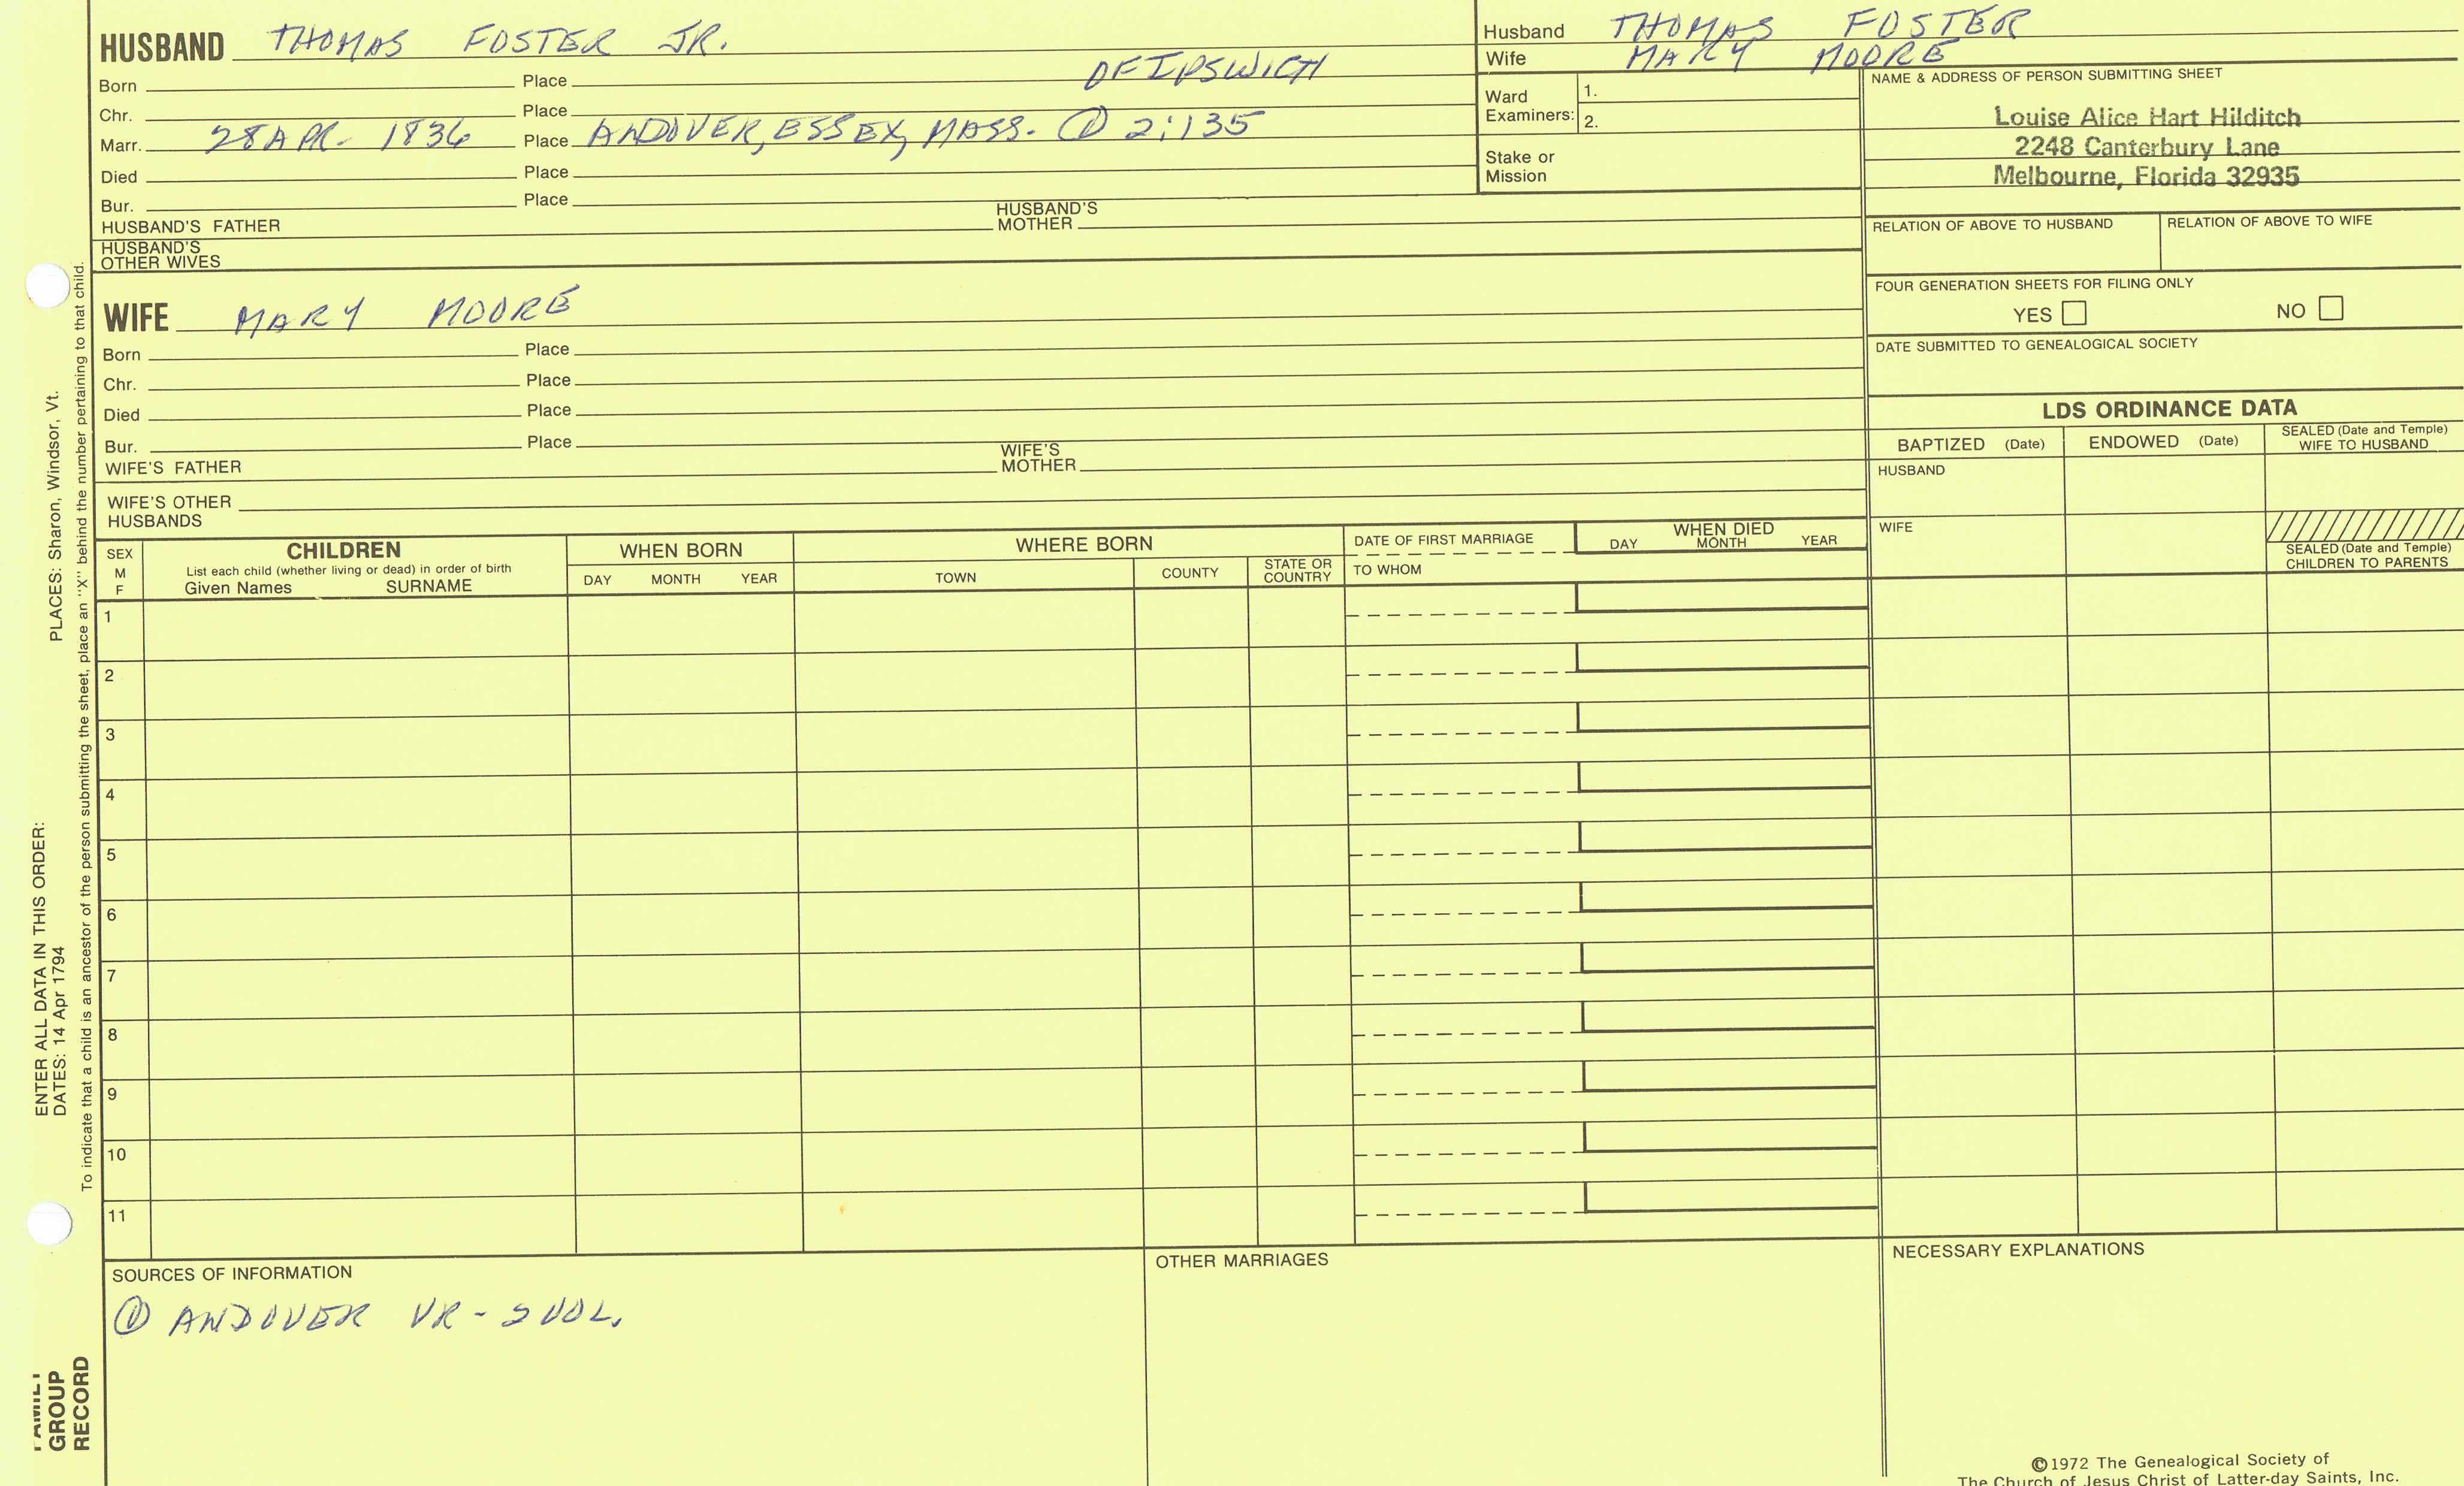 HUSBAND THOMAS FOSTER JR.
Born Place OF IPSWICH
Chr. Place
Marr. 28 APR- 1836 Place ANDOVER, ESSEX, MASS. ① 2:135
Died Place
Bur. Place
HUSBAND'S FATHER HUSBAND'S MOTHER
HUSBAND'S OTHER WIVES
Husband THOMAS FOSTER
Wife MARY MOORE
Ward Examiners: 1.
2.
Stake or Mission
NAME & ADDRESS OF PERSON SUBMITTING SHEET
Louise Alice Hart Hilditch
2248 Canterbury Lane
Melbourne, Florida 32935
RELATION OF ABOVE TO HUSBAND RELATION OF ABOVE TO WIFE
FOUR GENERATION SHEETS FOR FILING ONLY
YES NO
DATE SUBMITTED TO GENEALOGICAL SOCIETY
WIFE MARY MOORE
Born Place
Chr. Place
Died Place
Bur. Place
WIFE'S FATHER WIFE'S MOTHER
WIFE'S OTHER HUSBANDS
LDS ORDINANCE DATA
BAPTIZED (Date) ENDOWED (Date) SEALED (Date and Temple) WIFE TO HUSBAND
HUSBAND
WIFE
SEALED (Date and Temple) CHILDREN TO PARENTS
SEX M F
CHILDREN
List each child (whether living or dead) in order of birth
Given Names SURNAME
WHEN BORN
DAY MONTH YEAR
WHERE BORN
TOWN COUNTY STATE OR COUNTRY
DATE OF FIRST MARRIAGE
TO WHOM
WHEN DIED
DAY MONTH YEAR
1
2
3
4
5
6
7
8
9
10
11
SOURCES OF INFORMATION
① ANDOVER VR - 2 VOL.
OTHER MARRIAGES
NECESSARY EXPLANATIONS
©1972 The Genealogical Society of
The Church of Jesus Christ of Latter-day Saints, Inc.
ENTER ALL DATA IN THIS ORDER:
DATES: 14 Apr 1794 PLACES: Sharon, Windsor, Vt.
To indicate that a child is an ancestor of the person submitting the sheet, place an "X" behind the number pertaining to that child.
FAMILY
GROUP
RECORD